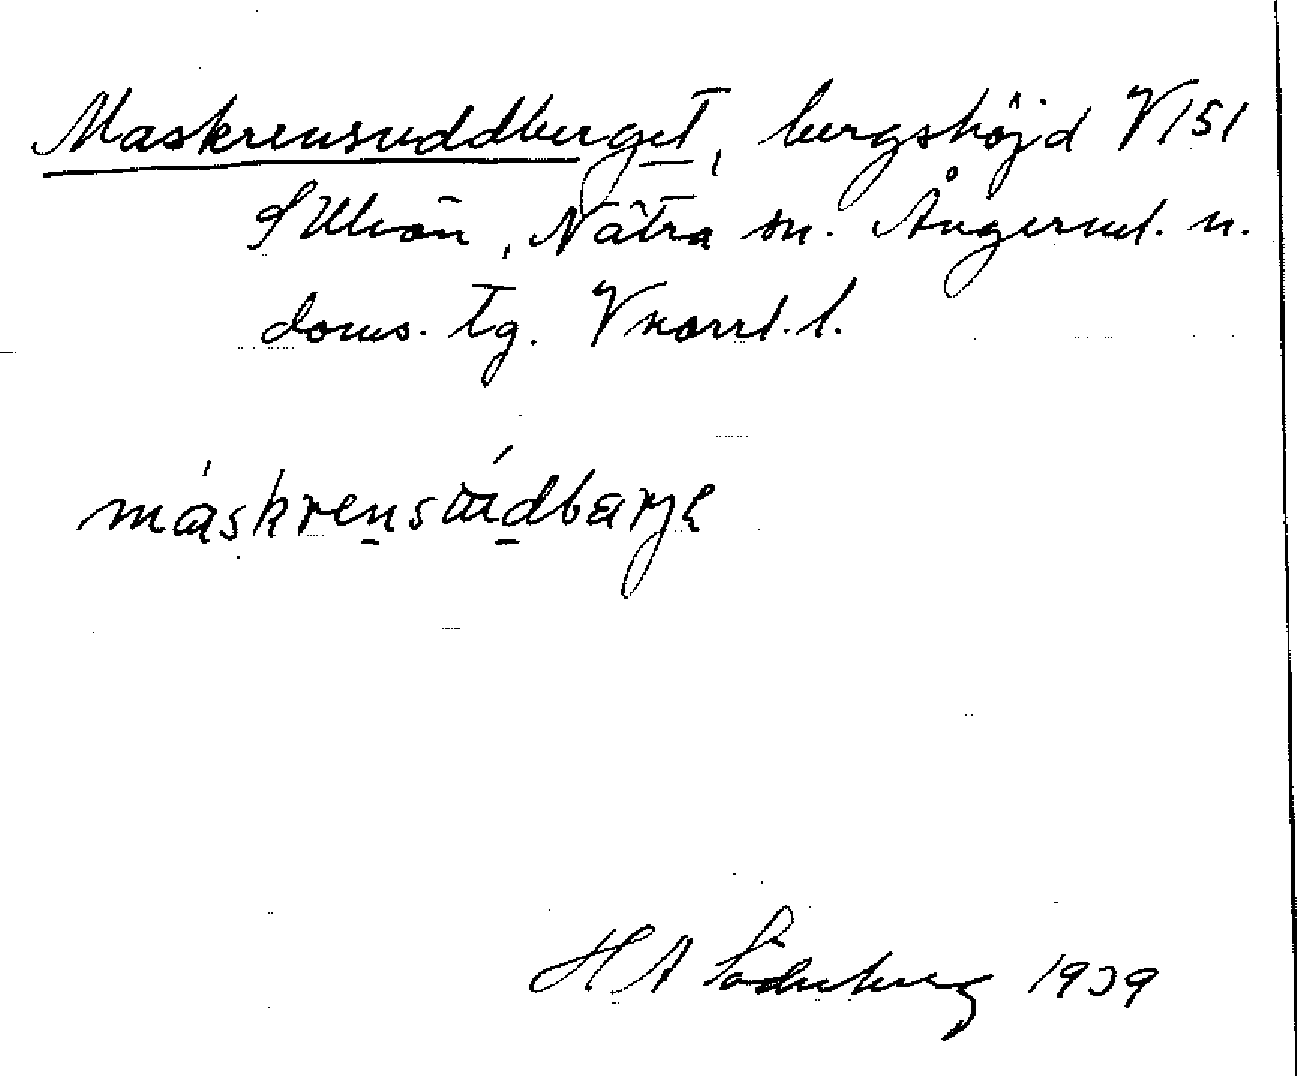 Maskrensuddberget, bergshöjd V 151
S Ulvön, Nätra sn. Ångerml. n.
doms. tg. Vnorrl. l.
máskrensúdbærje
H A Söderberg 1939